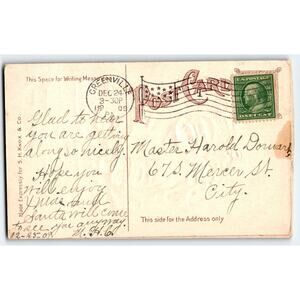 This Space for Writing Messages
GREENVILLE
DEC 24
3-30P
09
POST CARD
U.S. POSTAGE
ONE CENT
Glad to hear
you are getting
along so nicely.
Hope you
will enjoy
and
Santa will come
to see you anyway.
M. H. C.
12-25-09
Master Harold
67 S. Mercer St.
City.
This side for the Address only
Made Expressly for S. H. Knox & Co.